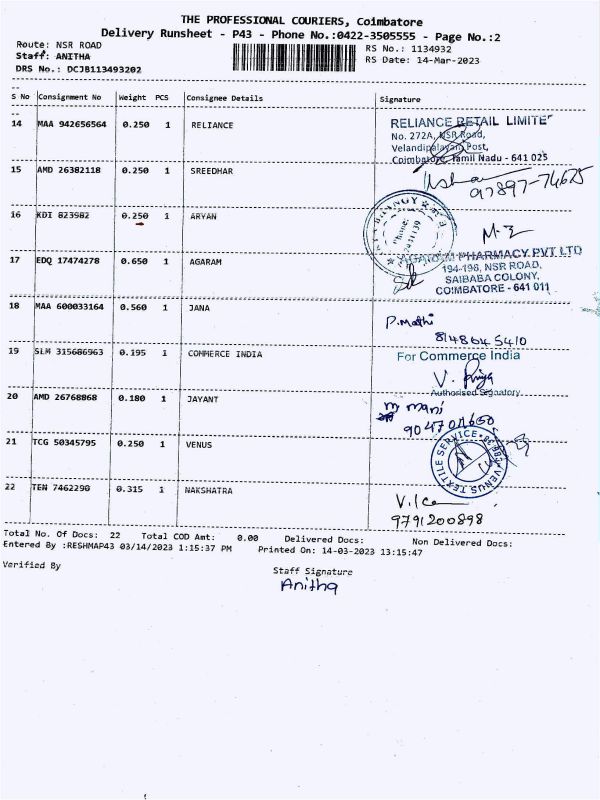 THE PROFESSIONAL COURIERS, Coimbatore
Delivery Runsheet - P43 - Phone No.:0422-3505555 - Page No.:2
Route: NSR ROAD
Staff: ANITHA
DRS No.: DCJB113493202
RS No.: 1134932
RS Date: 14-Mar-2023
S No Consignment No Weight PCS Consignee Details Signature
14 MAA 942656564 0.250 1 RELIANCE
RELIANCE RETAIL LIMITE
No. 272A, NSR Road,
Velandipalayam Post,
Coimbatore, Tamil Nadu - 641 025
15 AMD 26382118 0.250 1 SREEDHAR
97897-74675
16 KDI 823982 0.250 1 ARYAN
17 EDQ 17474278 0.650 1 AGARAM
AGARAM PHARMACY PVT LTD
194-196, NSR ROAD,
SAIBABA COLONY,
COIMBATORE - 641 011
18 MAA 600033164 0.560 1 JANA
P. Mathi
8148645410
19 SLM 315686963 0.195 1 COMMERCE INDIA
For Commerce India
V. Priya
Authorised Signatory
20 AMD 26768868 0.180 1 JAYANT
mani
21 TCG 50345795 0.250 1 VENUS
VENUS TEXTILE SERVICE
22 TEN 7462290 0.315 1 NAKSHATRA
9791200898
Total No. Of Docs: 22 Total COD Amt: 0.00 Delivered Docs: Non Delivered Docs:
Entered By :RESHMAP43 03/14/2023 1:15:37 PM Printed On: 14-03-2023 13:15:47
Verified By
Staff Signature
Anitha